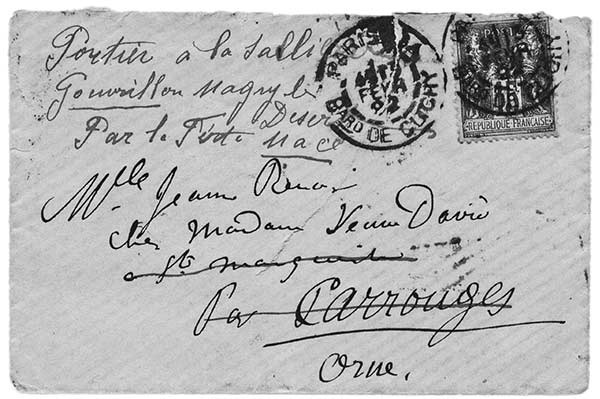 Portier à la
Gouvrillon Magny le
Desert
Par la Ferté Macé
PARIS
FEVR
82
BARD DE CLICHY
REPUBLIQUE FRANÇAISE
Mlle Jeanne Renoir
chez Madame Veuve David
Ste Marguerite
Par Carrouges
Orne.